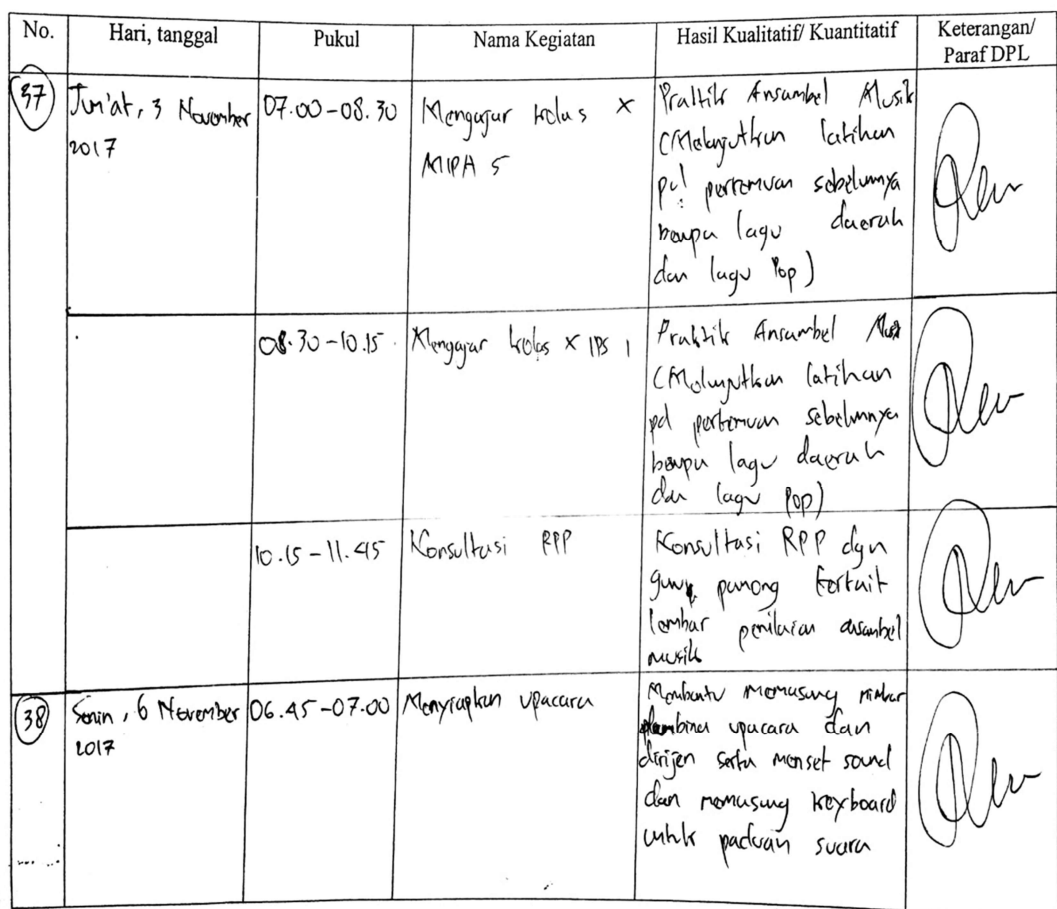 No. Hari, tanggal Pukul Nama Kegiatan Hasil Kualitatif/ Kuantitatif Keterangan/
Paraf DPL
37 Jum'at, 3 November 07.00-08.30 Mengajar kelas X Praktik Ansambel Musik
2017 MIPA 5 (Melanjutkan latihan
pd pertemuan sebelumnya
berupa lagu daerah
dan lagu Pop)
08.30-10.15 Mengajar kelas X IPS 1 Praktik Ansambel Musik
(Melanjutkan latihan
pd pertemuan sebelumnya
berupa lagu daerah
dan lagu Pop)
10.15-11.45 Konsultasi RPP Konsultasi RPP dgn
guru pamong terkait
lembar penilaian ansambel
musik
38 Senin, 6 November 06.45-07.00 Menyiapkan upacara Membantu memasang mimbar
2017 pembina upacara dan
dirijen serta menset sound
dan memasang keyboard
untuk paduan suara